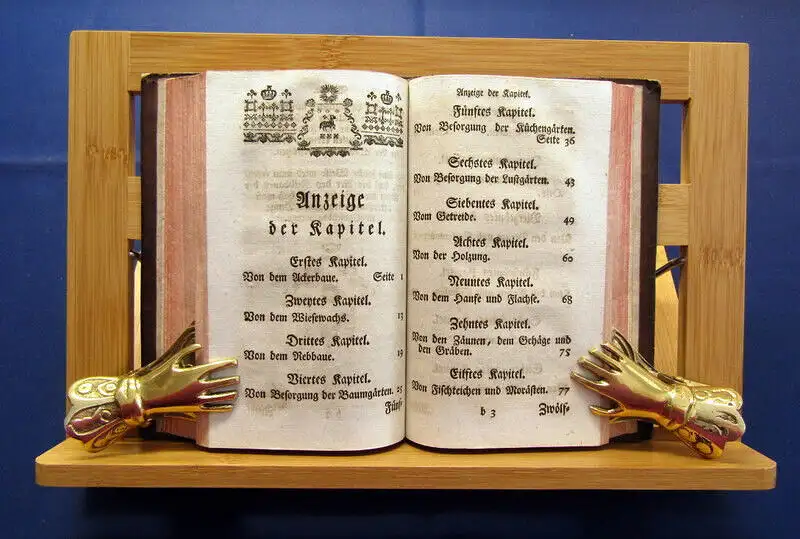 Anzeige
der Kapitel.
Erstes Kapitel.
Von dem Ackerbaue. Seite 1
Zweytes Kapitel.
Von dem Wiesewachs. 13
Drittes Kapitel.
Von dem Rebbaue. 19
Viertes Kapitel.
Von Besorgung der Baumgärten. 25
Fünf-
Anzeige der Kapitel.
Fünftes Kapitel.
Von Besorgung der Küchengärten.
Seite 36
Sechstes Kapitel.
Von Besorgung der Lustgärten. 43
Siebentes Kapitel.
Vom Getreide. 49
Achtes Kapitel.
Von der Holzung. 60
Neuntes Kapitel.
Von dem Hanfe und Flachse. 68
Zehntes Kapitel.
Von den Zäunen, dem Gehäge und
den Gräben. 75
Eilftes Kapitel.
Von Fischteichen und Morästen. 77
b 3 Zwölf-